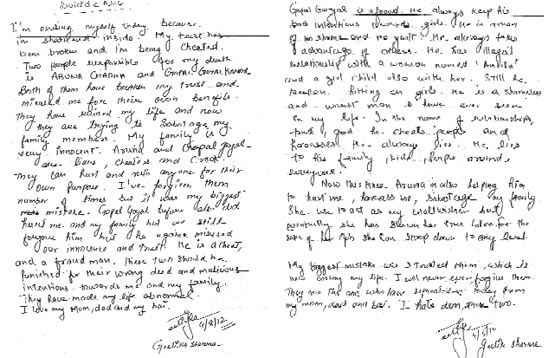 Suicide Note
I'm ending myself today because
I'm shattered inside. My trust has
been broken and I'm being cheated.
Two people responsible for my death
is Aruna Chadha and Gopal Goyal Kanda.
Both of them have broken my trust and
misused me for their own benefit.
They have ruined my life and now
they are trying to sabotage my
family members. My family is
very innocent. Aruna and Gopal Goyal
are liars, cheaters and
They can hurt and ruin anyone for their
own purpose. I've forgiven them
number of times but it was my biggest
mistake. Gopal Goyal before also did
hurt me and my family but we still
forgave him but he again misused
our innocence and trust. He is a cheat,
and a fraud man. These two should be
punished for their wrong deed and malicious
intentions towards me and my family.
They have made my life abnormal.
I love my Mom, dad and my bai.
4/8/12
Geetika Sharma
Gopal Goyal is a fraud. He always keep his
bad intentions towards girls. He is a man
of no shame and no guilt. He always takes
advantage of others. He has illegal
relationship with a woman named Ankita
and a girl child also with her. Still he
keeps hitting on girls. He is a shameless
and worst man I have ever seen
in my life. In the name of relationships,
god he cheats people and
harasses. He always lies. He lies
to his family, kids, people around,
everyone.
Now this time Aruna is also helping him
to hurt me, harass me, sabotage my family.
She use to act as my wellwisher but
she has shown her true colors for the
sake of her she can stoop down to any level.
My biggest mistake was I trusted them, which is
now costing my life. I will never ever forgive them.
They are the one who have separated today from
my mom, dad and bai. I hate dem, these two.
4/8/12
Geetika Sharma